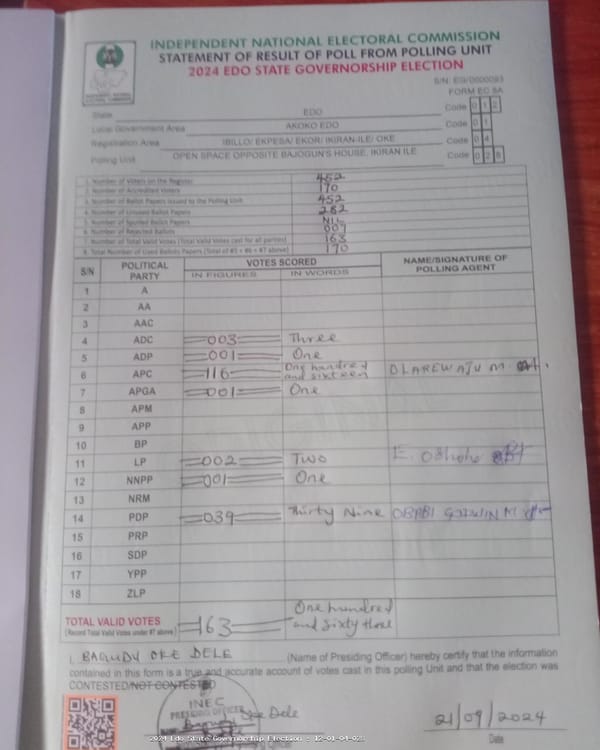 INDEPENDENT NATIONAL ELECTORAL COMMISSION
STATEMENT OF RESULT OF POLL FROM POLLING UNIT
2024 EDO STATE GOVERNORSHIP ELECTION
S/N: EG/0000093
FORM EC 8A
State EDO Code 0 1 2
Local Government Area AKOKO EDO Code 0 1
Registration Area IBILLO/ EKPESA/ EKOR/ IKIRAN-ILE/ OKE Code 0 4
Polling Unit OPEN SPACE OPPOSITE BAJOGUN'S HOUSE, IKIRAN ILE Code 0 2 8
1. Number of Voters on the Register 452
2. Number of Accredited Voters 170
3. Number of Ballot Papers Issued to the Polling Unit 452
4. Number of Unused Ballot Papers 282
5. Number of Spoiled Ballot Papers NIL
6. Number of Rejected Ballots 007
7. Number of Total Valid Votes (Total Valid Votes cast for all parties) 163
8. Total Number of Used Ballots Papers (Total of #5 + #6 + #7 above) 170
S/N POLITICAL PARTY VOTES SCORED NAME/SIGNATURE OF POLLING AGENT
IN FIGURES IN WORDS
1 A
2 AA
3 AAC
4 ADC 003 Three
5 ADP 001 One
6 APC 116 One hundred and sixteen OLAREWAJU M
7 APGA 001 One
8 APM
9 APP
10 BP
11 LP 002 Two E. Oshoho
12 NNPP 001 One
13 NRM
14 PDP 039 Thirty Nine GODWIN M
15 PRP
16 SDP
17 YPP
18 ZLP
TOTAL VALID VOTES 163 One hundred and sixty three
(Record Total Valid Votes under #7 above)
I, BAGUDU OKE DELE (Name of Presiding Officer) hereby certify that the information
contained in this form is a true and accurate account of votes cast in this polling Unit and that the election was
CONTESTED/NOT CONTESTED
INEC
PRESIDING OFFICER
Oke Dele
21/09/2024
Date
2024 Edo State Governorship Election : 12-01-04-028